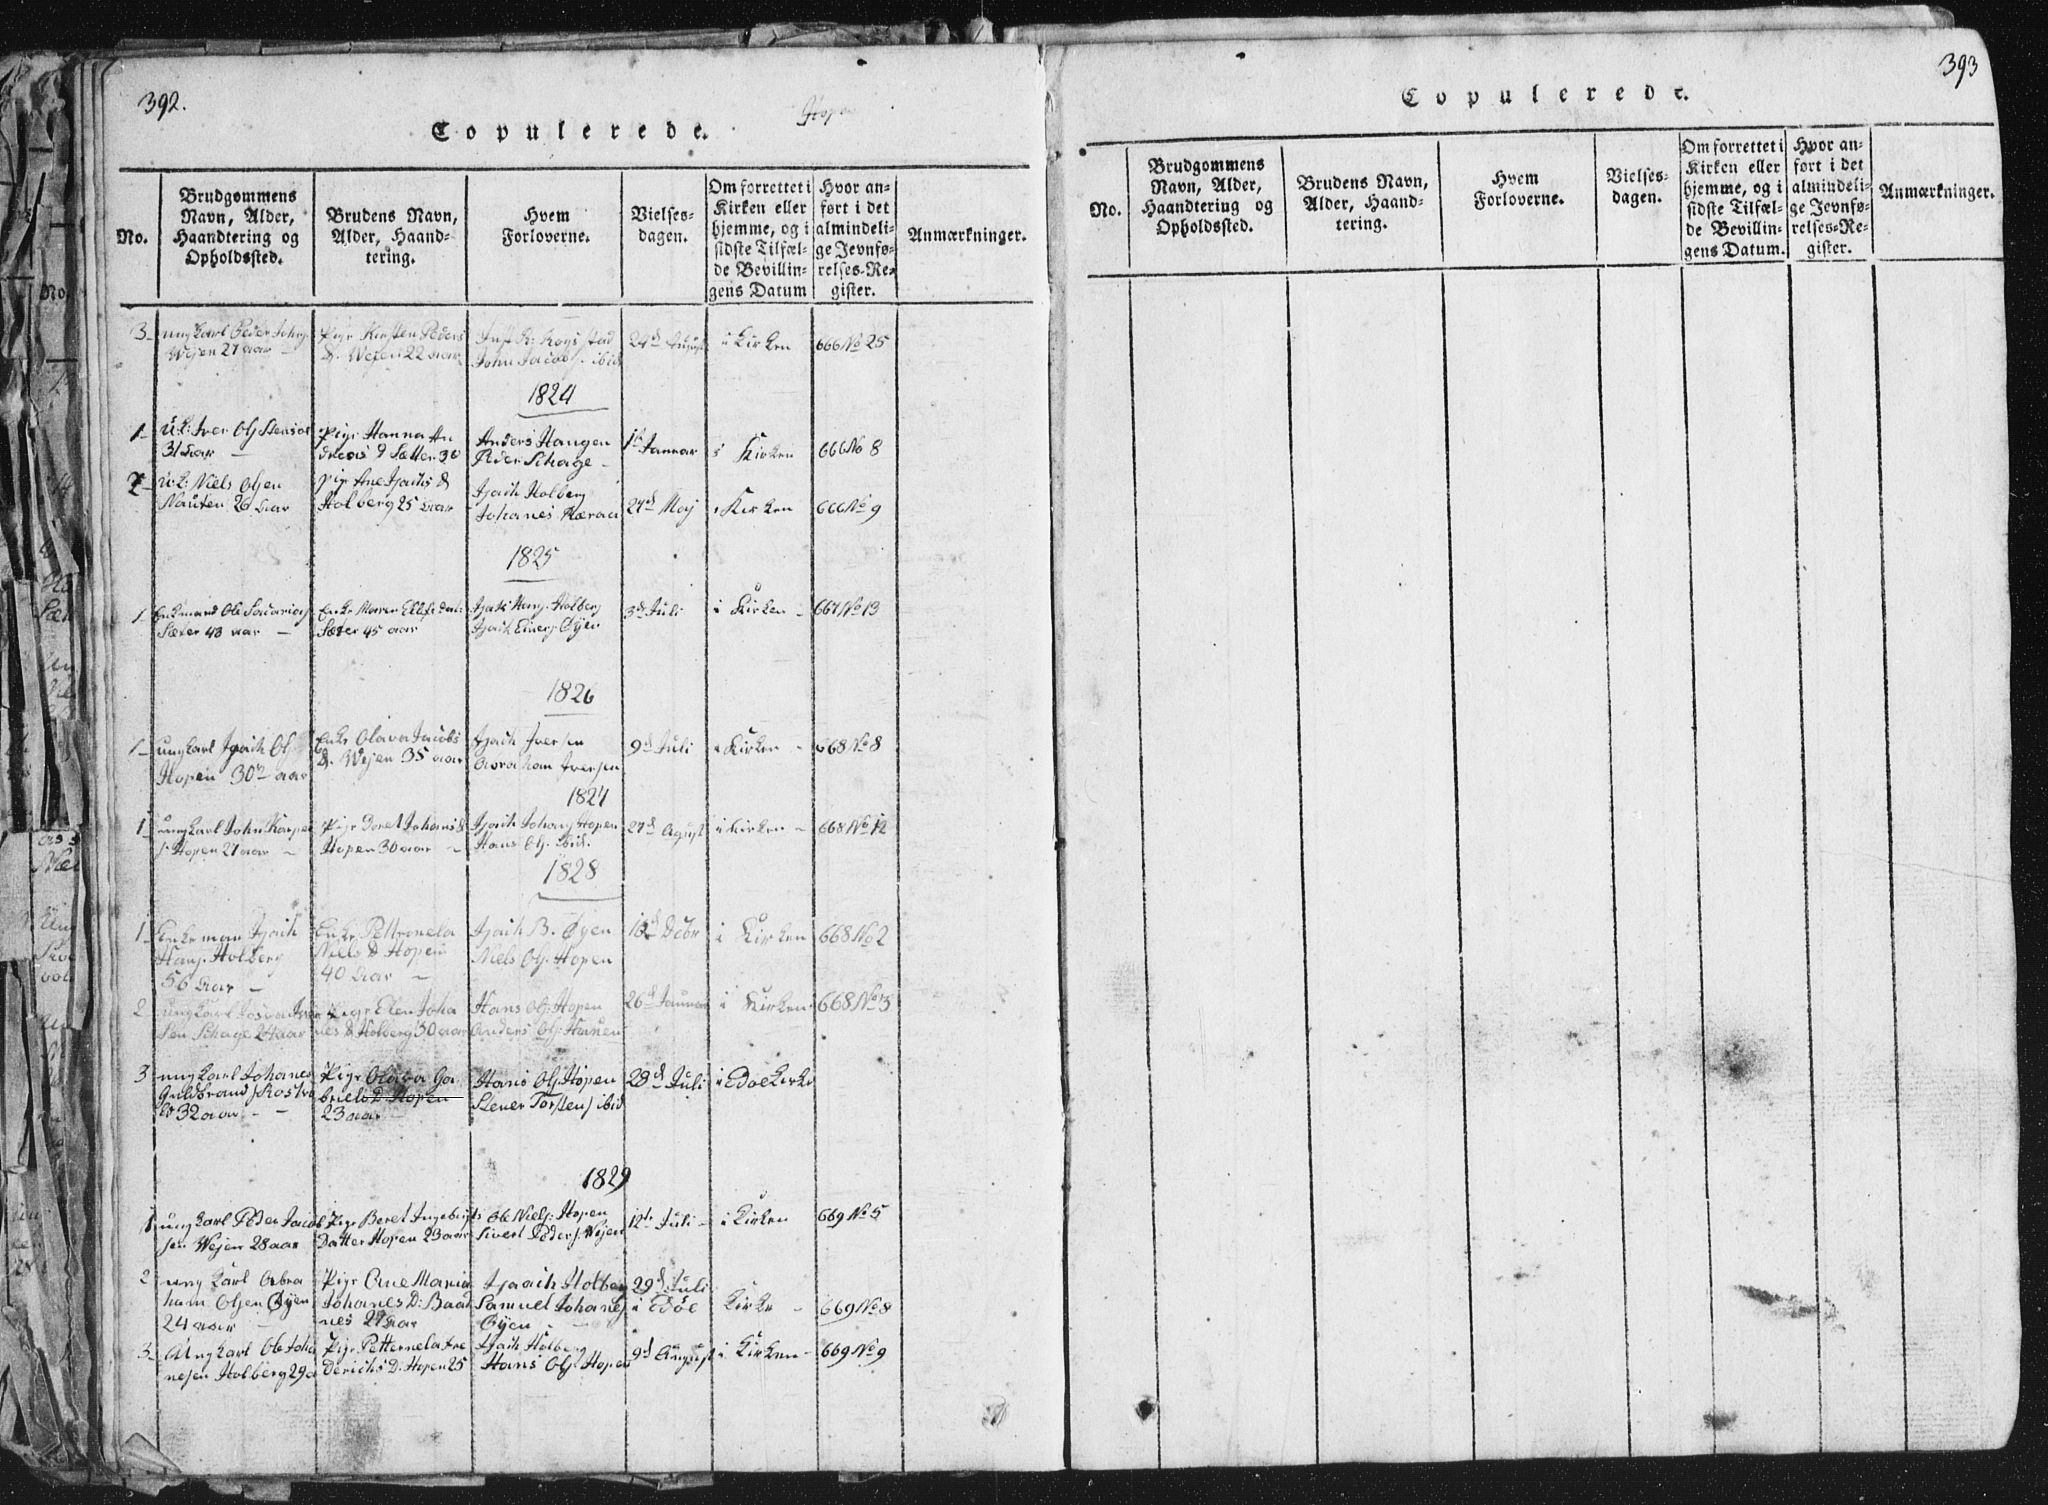 392.
Copulerede.
No.
Brudgommens
Navn, Alder,
Haandtering og
Opholdssted.
Brudens Navn,
Alder, Haand-
tering.
Hvem
Forloverne.
Vielses-
dagen.
Om forrettet i
Kirken eller
hjemme, og i
sidste Tilfæl-
de Bevillin-
gens Datum
Hvor an-
ført i det
almindeli-
ge Jevnfø-
relses-Re-
gister.
Anmærkninger.
3
ungkarl Peder Johns
Wejen 27 aar
Pige Kirsten Peders
D. Wejen 22 aar
John Jacobs. ibid
24d August
i Kirken
666 No 25
1824
1
U.k: Iver Ols Stensøe
31 aar
Pige Hanna An
dreas D Sætter 30
Anders Haugen
Peder Schage
1te Januar
i Kirken
666 No 8
2
U.k: Niels Olsen
Nauten 26 aar
Pige Ane Isachs D
Holberg 25 aar
Isach Holberg
Johanes
27d Maj
i Kirken
666 No 9
1825
1
Enkemand Ole Sacarias
Sæter 48 aar
Enke Maren Ellefs dat:
Sæter 45 aar
Isach Hans. Holberg
Isach Einers Øyen
3d Juli
i Kirken
667 No 13
1826
1
ungkarl Isach Ols
Hopen 30 aar
Enke Olava Jacobs
D. Wejen 35 aar
Isach Iversen
Abraham Iversen
9d Juli
i Kirken
668 No 8
1827
1
ungkarl John Kasper
s. Hopen 27 aar
Pige Beret Johans D
Hopen 30 aar
Isach Johans Hopen
Hans Ols. ibid.
27d Agust
i Kirken
668 No 12
1828
1
Enkeman Isach
Hans. Holberg
56 aar
Enke Pettronela
Niels D Hopen
40 aar
Isach B. Øyen
Niels Ols. Hopen
Debr
i Kirken
668 No 2
2
ungkarl Josva Iver
sen Schage 24 aar
Pige Elen Joha
nes D Holberg 30 aar
Hans Ols. Hopen
Anders Ols.
26d Januar
i Kirken
668 No 3
3
ungkarl Johanes
Guldbrands Rostvo
ld 32 aar
Pige Olava Ga
briels D Hopen
23 aar
Hans Ols. Hopen
Stener Torstens ibid
28d Juli
i Edoe Kirke
1829
1
ungkarl Peder Jacob
sen Wejen 28 aar
Pige Beret Ingebrigts
Datter Hopen 23 aar
Ole Niels. Hopen
Sivert Peders. Wejen
12te Juli
i Kirken
669 No 5
2
ungkarl Abra
ham Olsen Øyen
24 aar
Pige Ane Maria
Johanes D: Baad
nes 27 aar
Isaach Holberg
Samuel Johanes
Øyen
29d Juli
i Edøe
Kirke
669 No 8
3
Ungkarl Ole Joha
nesen Holberg 29 a
Pige Petternela Fre
derichs D. Hopen 25
Isach Holberg
Hans Ols. Hopen
9d August
i Kirken
669 No 9
393
Copulerede.
No.
Brudgommens
Navn, Alder,
Haandtering og
Opholdssted.
Brudens Navn,
Alder, Haand-
tering.
Hvem
Forloverne.
Vielses-
dagen.
Om forrettet i
Kirken eller
hjemme, og i
sidste Tilfæl-
de Bevillin-
gens Datum.
Hvor an-
ført i det
almindeli-
ge Jevnfø-
relses-Re-
gister.
Anmærkninger.